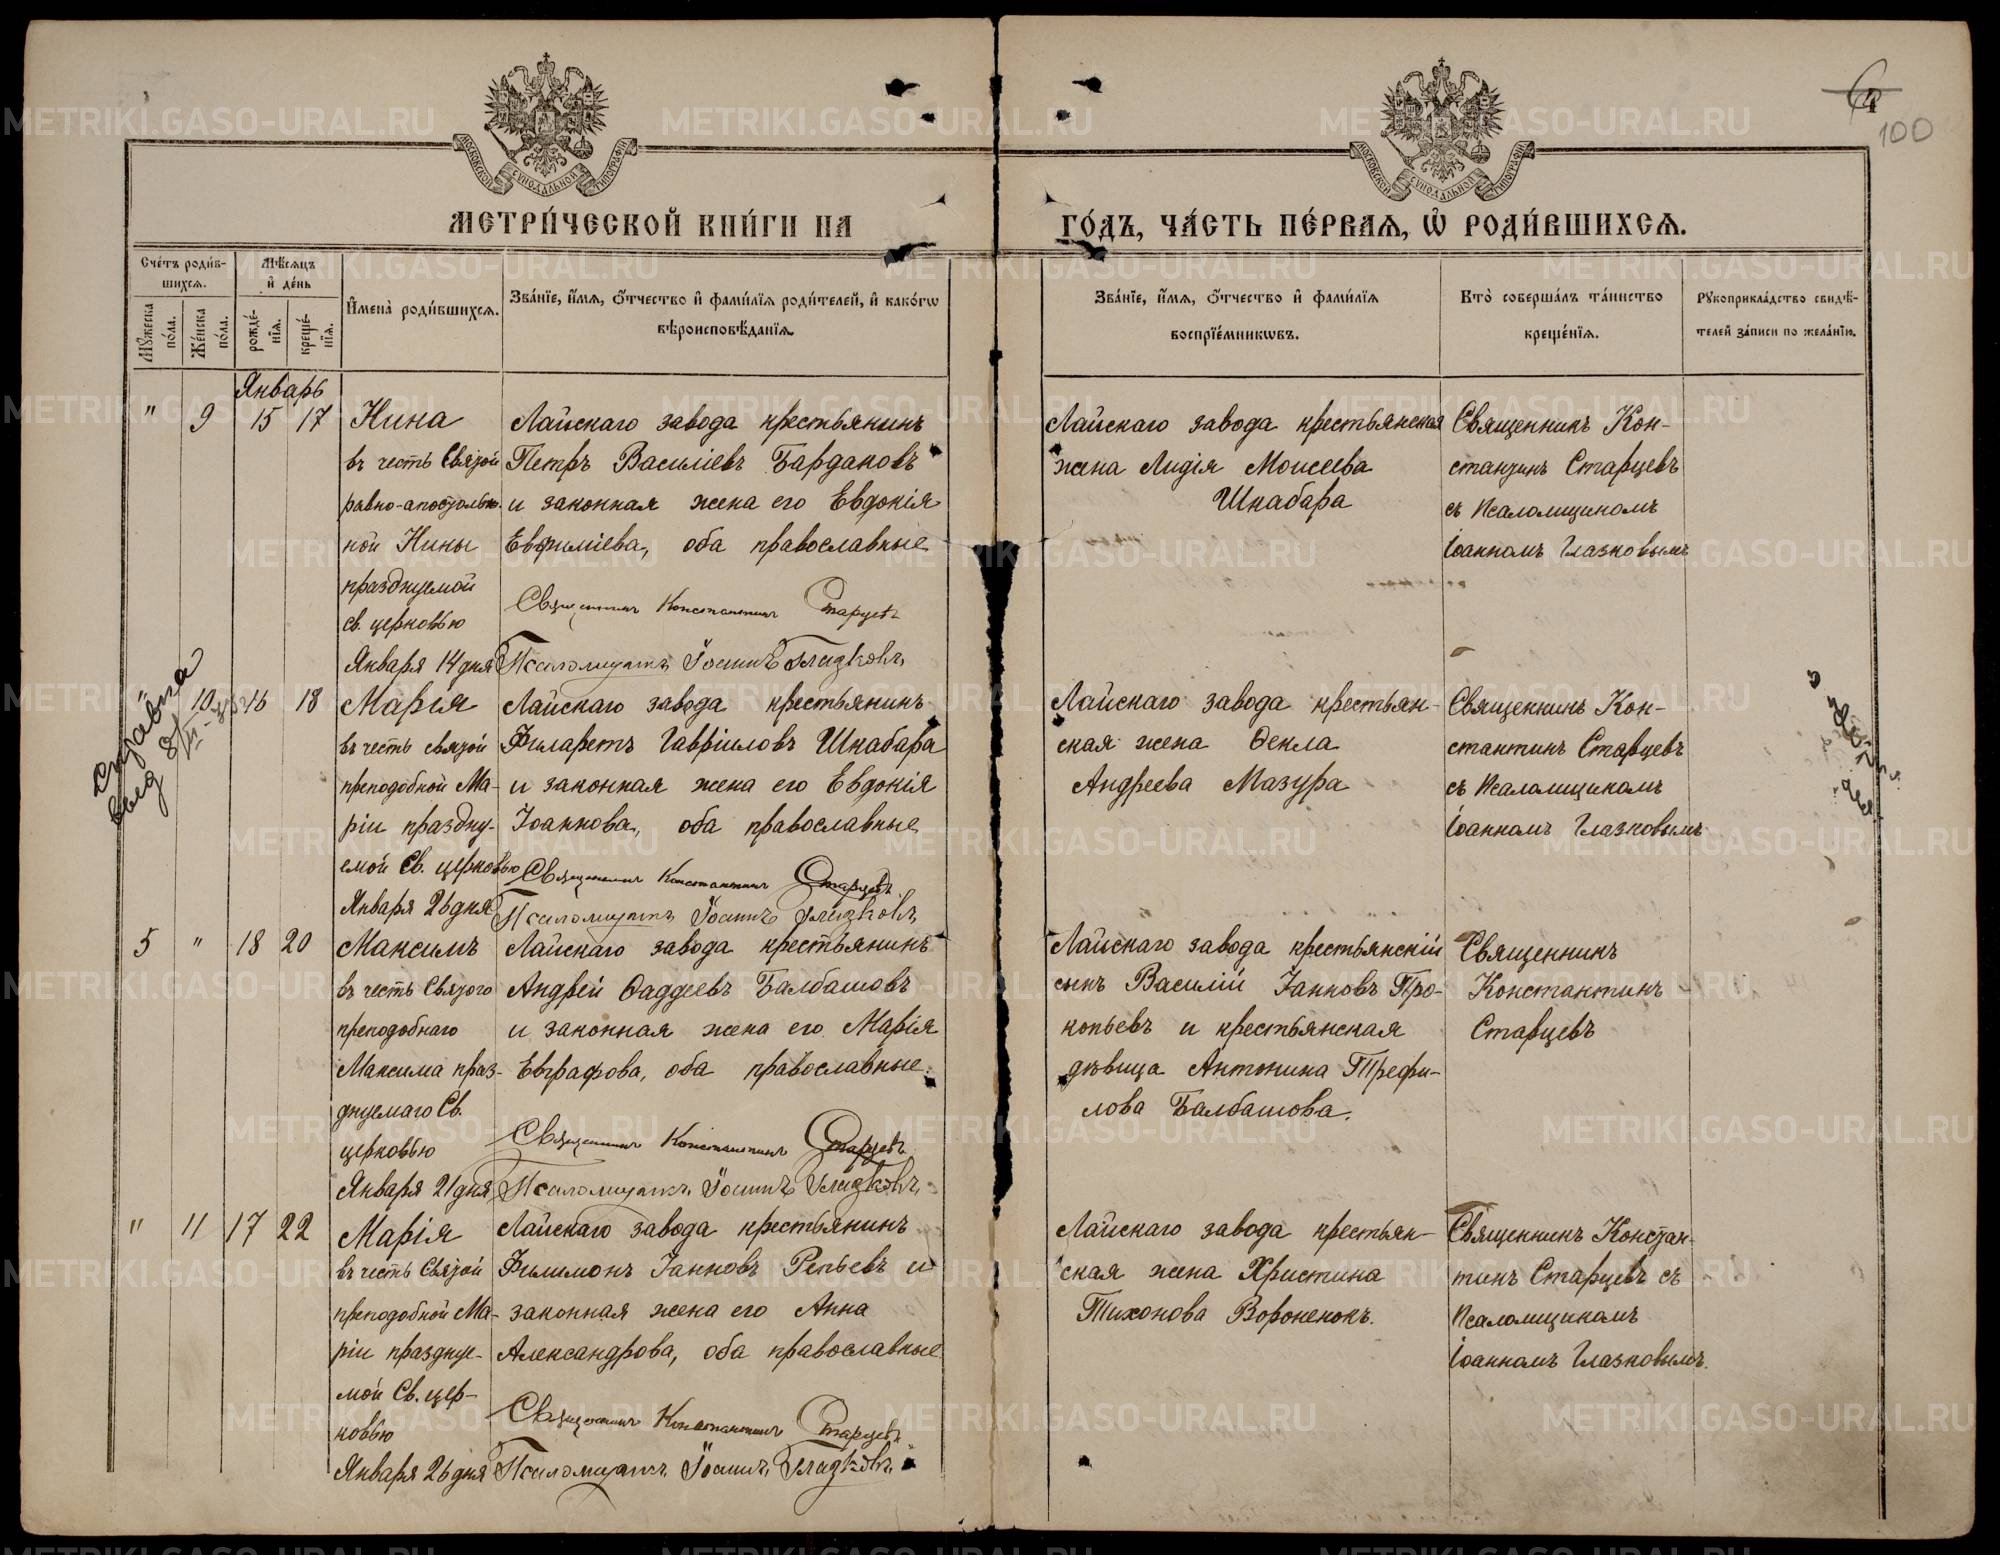 4
100
МОСКОВСКОЙ СѴНОДАЛЬНОЙ ТИПОГРАФІИ
МОСКОВСКОЙ СѴНОДАЛЬНОЙ ТИПОГРАФІИ
МЕТРИ́ЧЕСКОЙ КНИ́ГИ НА ГО́ДЪ, ЧА́СТЬ ПЕ́РВАѦ, Ѡ҆ РОДИ́ВШИХСѦ.
Сче́тъ роди́в-
шихсѧ.
Мꙋ́жеска
по́ла.
Же́нска
по́ла.
Мѣ́сѧцъ
и҆ де́нь
рожде́-
нїѧ.
креще́-
нїѧ.
И҆мена̀ роди́вшихсѧ.
Зва́нїе, и҆́мѧ, ѻ҆́тчество и҆ фами́лїѧ роди́телей, и҆ како́гѡ
вѣроисповѣ́данїѧ.
Зва́нїе, и҆́мѧ, ѻ҆́тчество и҆ фами́лїѧ
воспрїе́мникѡвъ.
Кто̀ соверша́лъ та́инство
креще́нїѧ.
Рꙋкоприкла́дство свидѣ́-
телей за́писи по жела́нїю.
Январь
" 9 15 17
Нина
въ честь Святой
равно-апостоль-
ной Нины
празднуемой
св. церковью
Января 14 дня
Лайскаго завода крестьянинъ
Петръ Василіевъ Бардаковъ
и законная жена его Евдокія
Евфиміева, оба православные
Священникъ Константинъ Старцевъ
Псаломщикъ Іоаннъ Глазковъ
Лайскаго завода крестьянская
жена Лидія Моисеева
Шкабара
Священникъ Кон-
стантинъ Старцевъ
съ Псаломщикомъ
Іоанномъ Глазковымъ
10 16 18
Марія
въ честь святой
преподобной Ма-
ріи праздну-
емой Св. церковью
Января 26 дня
Лайскаго завода крестьянинъ
Филаретъ Гавріиловъ Шкабара
и законная жена его Евдокія
Іоаннова, оба православные
Священникъ Константинъ Старцевъ
Псаломщикъ Іоаннъ Глазковъ
Лайскаго завода крестьян-
ская жена Ѳекла
Андреева Мазура
Священникъ Кон-
стантинъ Старцевъ
съ Псаломщикомъ
Іоанномъ Глазковымъ
5 " 18 20
Максимъ
въ честь Святого
преподобнаго
Максима праз-
днуемаго Св.
церковью
Января 21 дня
Лайскаго завода крестьянинъ
Андрей Ѳаддеевъ Балбашовъ
и законная жена его Марія
Евграфова, оба православные
Священникъ Константинъ Старцевъ
Псаломщикъ Іоаннъ Глазковъ
Лайскаго завода крестьянскій
сынъ Василій Іанновъ Про-
копьевъ и крестьянская
дѣвица Антонина Трефи-
лова Балбашова.
Священникъ
Константинъ
Старцевъ
" 11 17 22
Марія
въ честь Святой
преподобной Ма-
ріи праздну-
емой Св. цер-
ковью
Января 26 дня
Лайскаго завода крестьянинъ
Филимонъ Іанновъ Репьевъ и
законная жена его Анна
Александрова, оба православные
Священникъ Константинъ Старцевъ
Псаломщикъ Іоаннъ Глазковъ
Лайскаго завода крестьян-
ская жена Христина
Тихонова Вороненокъ.
Священникъ Констан-
тинъ Старцевъ съ
Псаломщикомъ
Іоанномъ Глазковымъ.
METRIKI.GASO-URAL.RU